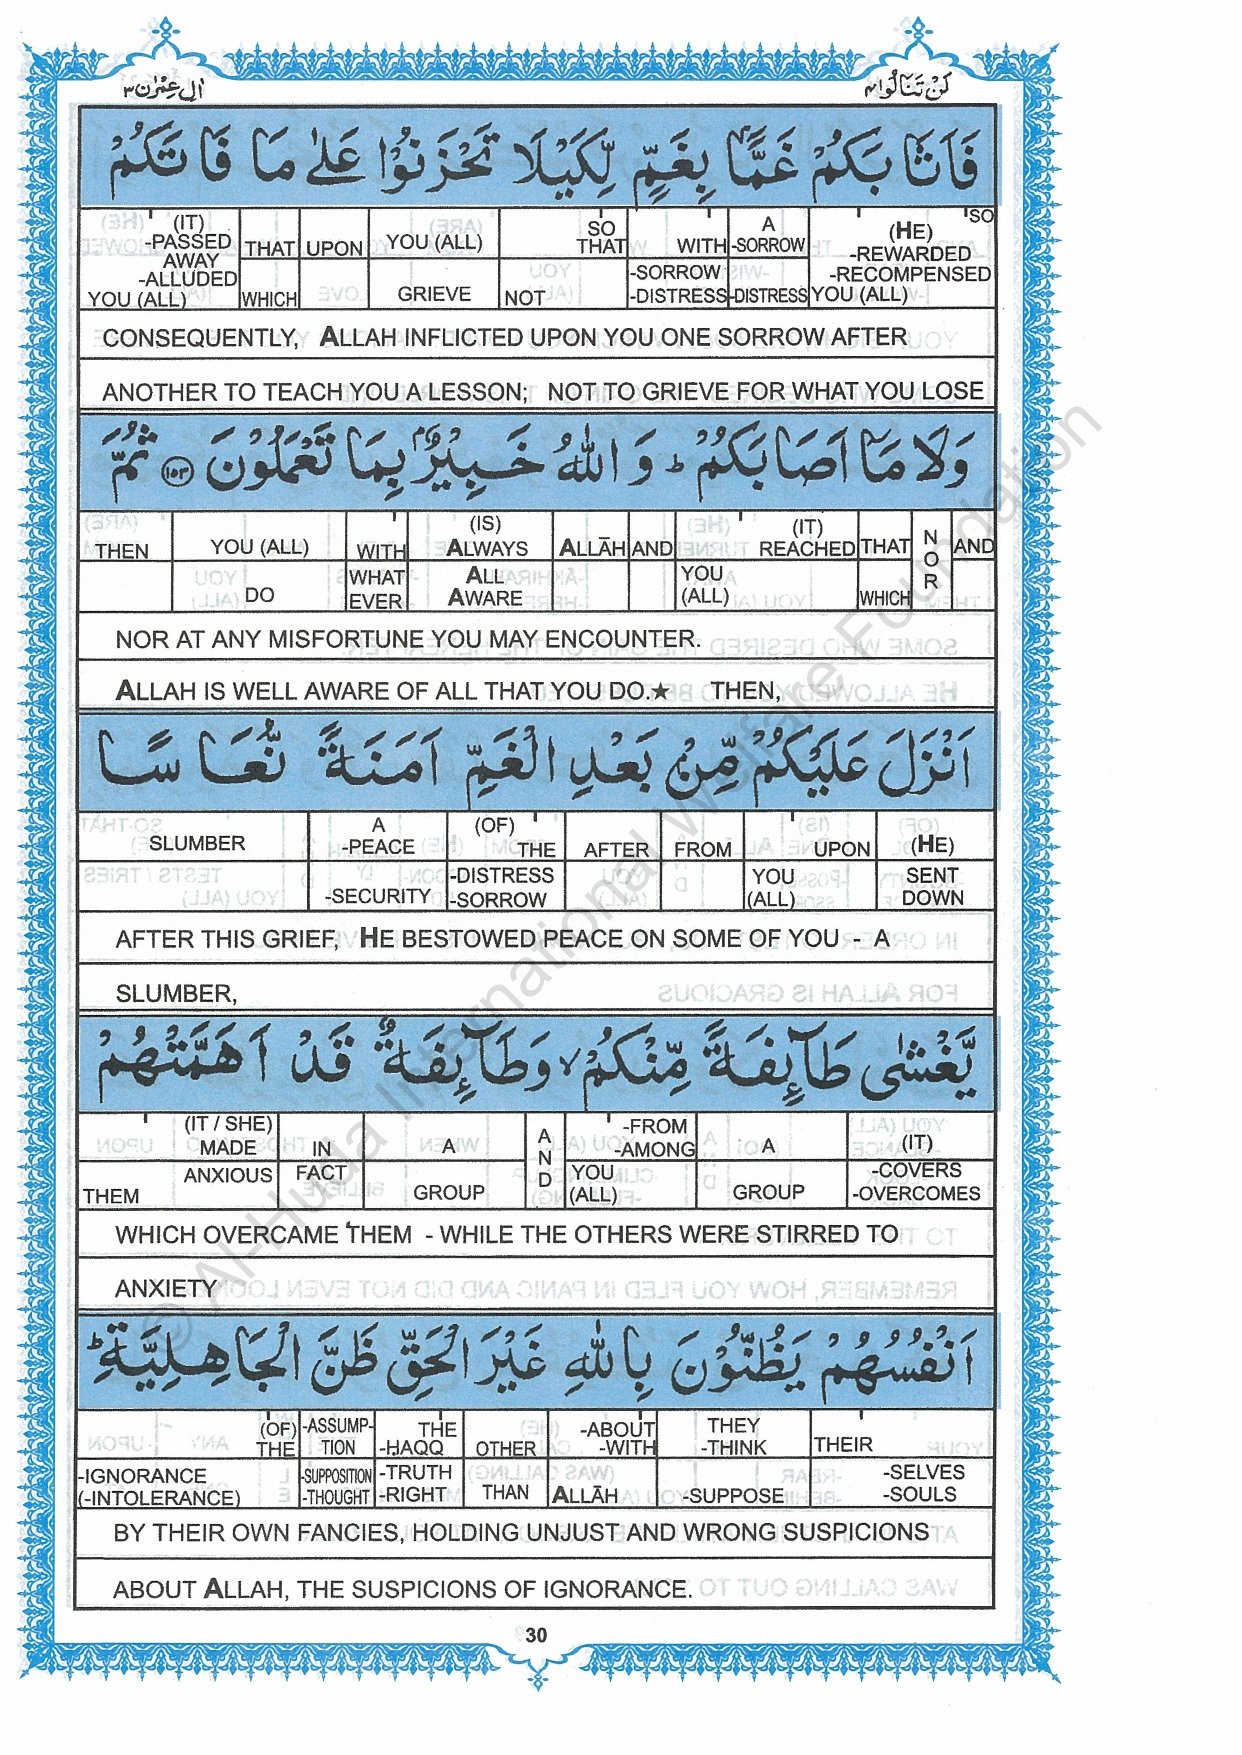 اٰل عِمْرٰن ٣
لَنْ تَنَالُوا ٤
فَاَثَابَكُمْ غَمًّۢا بِغَمٍّ لِّكَيْلَا تَحْزَنُوْا عَلٰى مَا فَاتَكُمْ
(IT) -PASSED AWAY -ALLUDED YOU (ALL)
THAT WHICH
UPON
YOU (ALL) GRIEVE
NOT
SO THAT
WITH -SORROW -DISTRESS
A -SORROW -DISTRESS
SO (HE) -REWARDED -RECOMPENSED YOU (ALL)
CONSEQUENTLY, ALLAH INFLICTED UPON YOU ONE SORROW AFTER
ANOTHER TO TEACH YOU A LESSON; NOT TO GRIEVE FOR WHAT YOU LOSE
وَلَا مَاۤ اَصَابَكُمْ ؕ وَ اللّٰهُ خَبِيْرٌۢ بِمَا تَعْمَلُوْنَ ١٥٣ ثُمَّ
THEN
YOU (ALL) DO
WITH WHAT EVER
(IS) ALWAYS ALL AWARE
ALLĀH
AND
(IT) REACHED YOU (ALL)
THAT WHICH
NOR
AND
NOR AT ANY MISFORTUNE YOU MAY ENCOUNTER.
ALLAH IS WELL AWARE OF ALL THAT YOU DO.★ THEN,
اَنْزَلَ عَلَيْكُمْ مِّنْۢ بَعْدِ الْغَمِّ اَمَنَةً نُّعَاسًا
SLUMBER
A -PEACE -SECURITY
(OF) THE -DISTRESS -SORROW
AFTER
FROM
UPON YOU (ALL)
(HE) SENT DOWN
AFTER THIS GRIEF, HE BESTOWED PEACE ON SOME OF YOU - A
SLUMBER,
يَّغْشٰى طَآىِٕفَةً مِّنْكُمْ ۙ وَطَآىِٕفَةٌ قَدْ اَهَمَّتْهُمْ
(IT / SHE) MADE ANXIOUS THEM
IN FACT
A GROUP
AND
-FROM -AMONG YOU (ALL)
A GROUP
(IT) -COVERS -OVERCOMES
WHICH OVERCAME THEM - WHILE THE OTHERS WERE STIRRED TO
ANXIETY
اَنْفُسُهُمْ يَظُنُّوْنَ بِاللّٰهِ غَيْرَ الْحَقِّ ظَنَّ الْجَاهِلِيَّةِ ؕ
(OF) THE -IGNORANCE (-INTOLERANCE)
-ASSUMP-TION -SUPPOSITION -THOUGHT
THE -ḤAQQ -TRUTH -RIGHT
OTHER THAN
-ABOUT -WITH ALLĀH
THEY -THINK -SUPPOSE
THEIR -SELVES -SOULS
BY THEIR OWN FANCIES, HOLDING UNJUST AND WRONG SUSPICIONS
ABOUT ALLAH, THE SUSPICIONS OF IGNORANCE.
30
© Al-Huda International Welfare Foundation